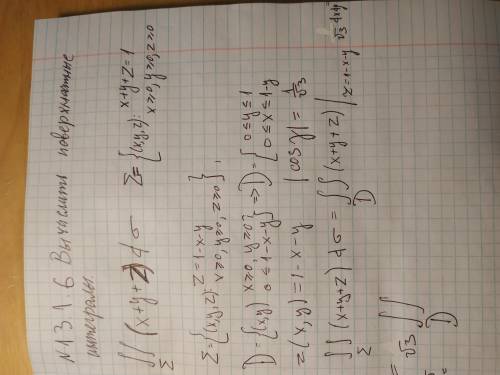 N 13.1.6 Вычислить поверхностные
интегралы.
∬_Σ (x+y+z) dσ   Σ = {(x,y,z): x+y+z=1   x≥0, y≥0, z≥0
Σ = {(x,y,z): z=1-x-y   x≥0, y≥0, z≥0},
D = {(x,y) x≥0, y≥0   0≤1-x-y} => D = {0≤y≤1   0≤x≤1-y
z(x,y) = 1-x-y   |cos γ| = 1/√3
∬_Σ (x+y+z) dσ = ∬_D (x+y+z)|_{z=1-x-y} √3 dxdy
= √3 ∬_D